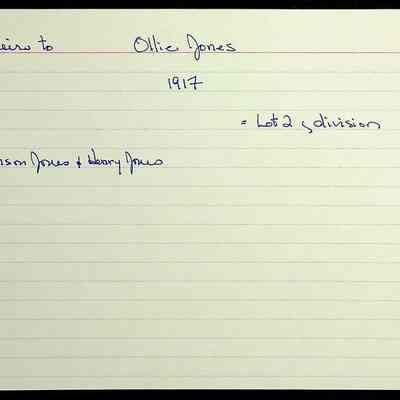 eirs to Ollie Jones
1917
= Lot 2 division
nson Jones + Henry Jones